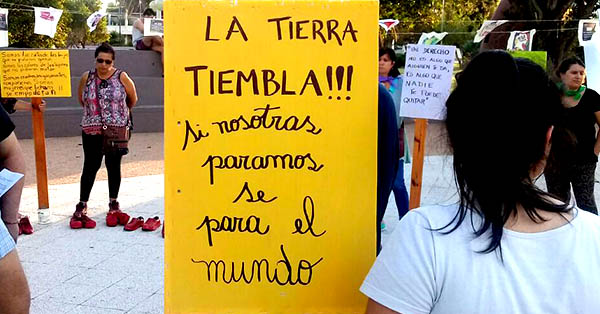 LA TIERRA
TIEMBLA!!!
Si nosotras
paramos
se
para el
mundo
UN DERECHO
NO ES ALGO QUE
ALGUIEN TE DA,
ES ALGO QUE
NADIE
TE PUEDE
QUITAR